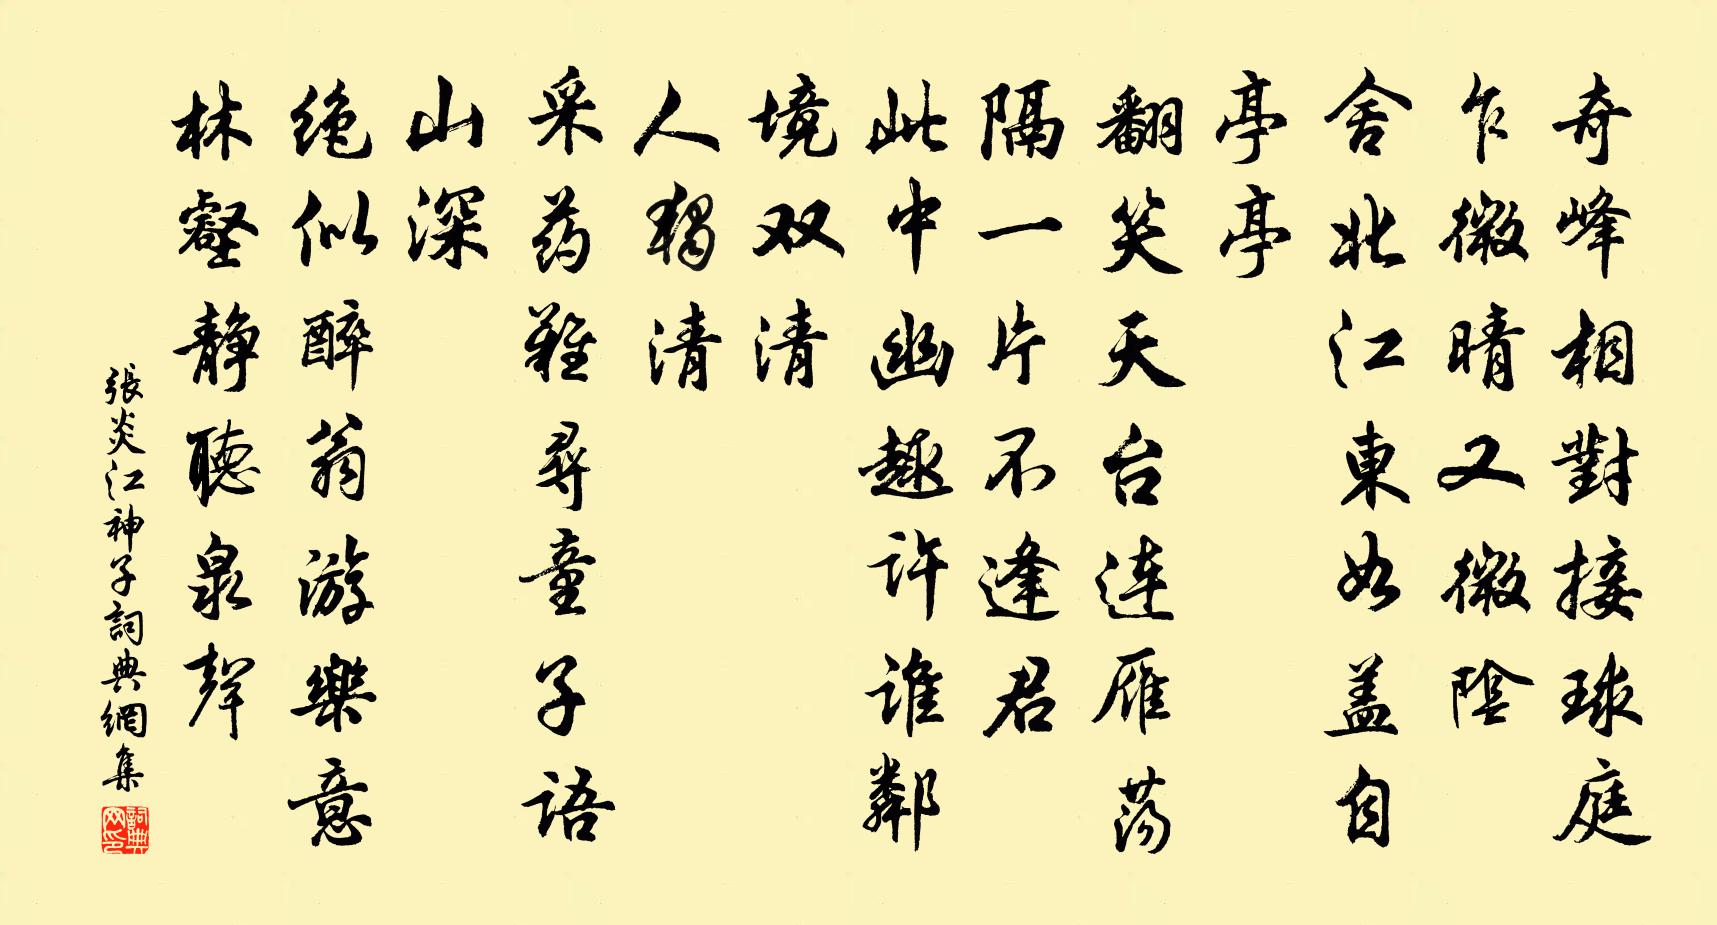 奇峰相對接球庭
乍微晴又微陰
舍北江東如盖自
亭亭
翻笑天台連雁蕩
隔一片不逢君
此中幽趣許谁鄰
境双清
人獨清
采药難尋童子語
山深
絶似醉翁游樂意
林壑静聽泉聲
張炎江神子詞典網集
詞典网印